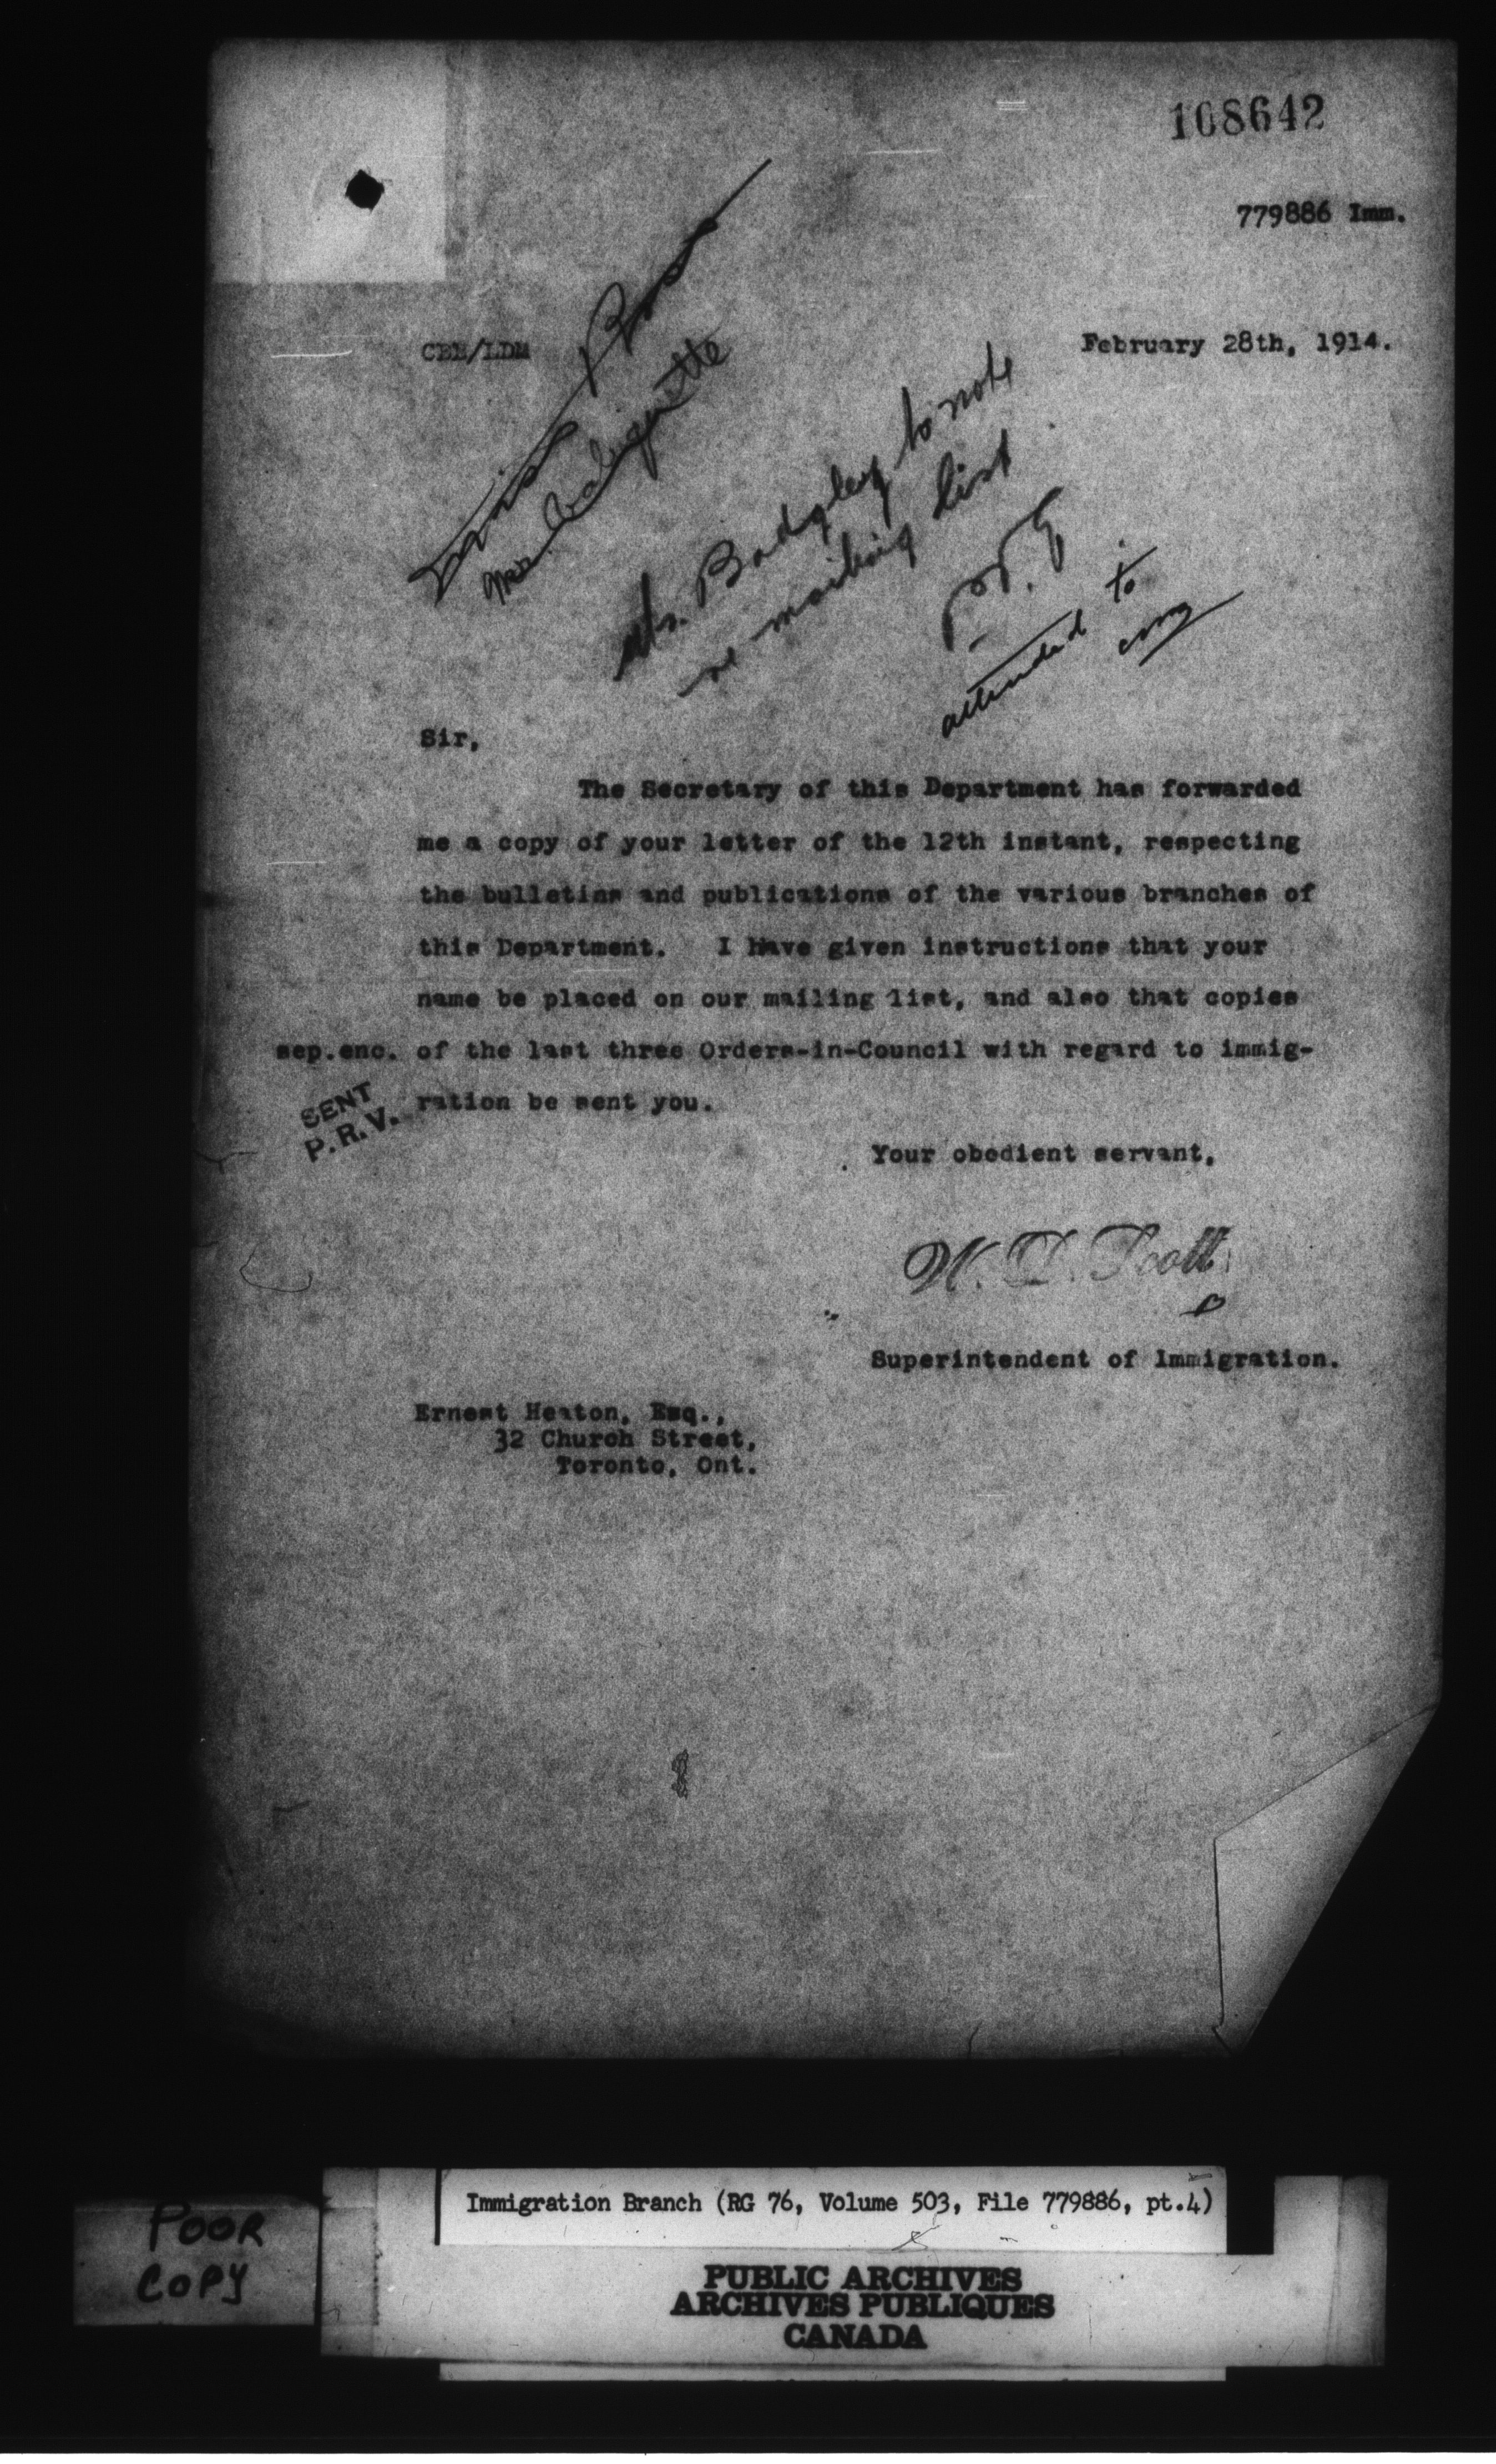 108642
779886 Imm.
February 28th, 1914.
Miss Ross
Mr. Badgley to note
re mailing list
attended to
Sir,
The Secretary of this Department has forwarded
me a copy of your letter of the 12th instant, respecting
the bulletins and publications of the various branches of
this Department. I have given instructions that your
name be placed on our mailing list, and also that copies
sep.enc. of the last three Orders-in-Council with regard to immig-
ration be sent you.
SENT
P.R.V.
Your obedient servant,
W. D. Scott
Superintendent of Immigration.
Ernest Heaton, Esq.,
32 Church Street,
Toronto, Ont.
POOR
COPY
Immigration Branch (RG 76, Volume 503, File 779886, pt.4)
PUBLIC ARCHIVES
ARCHIVES PUBLIQUES
CANADA